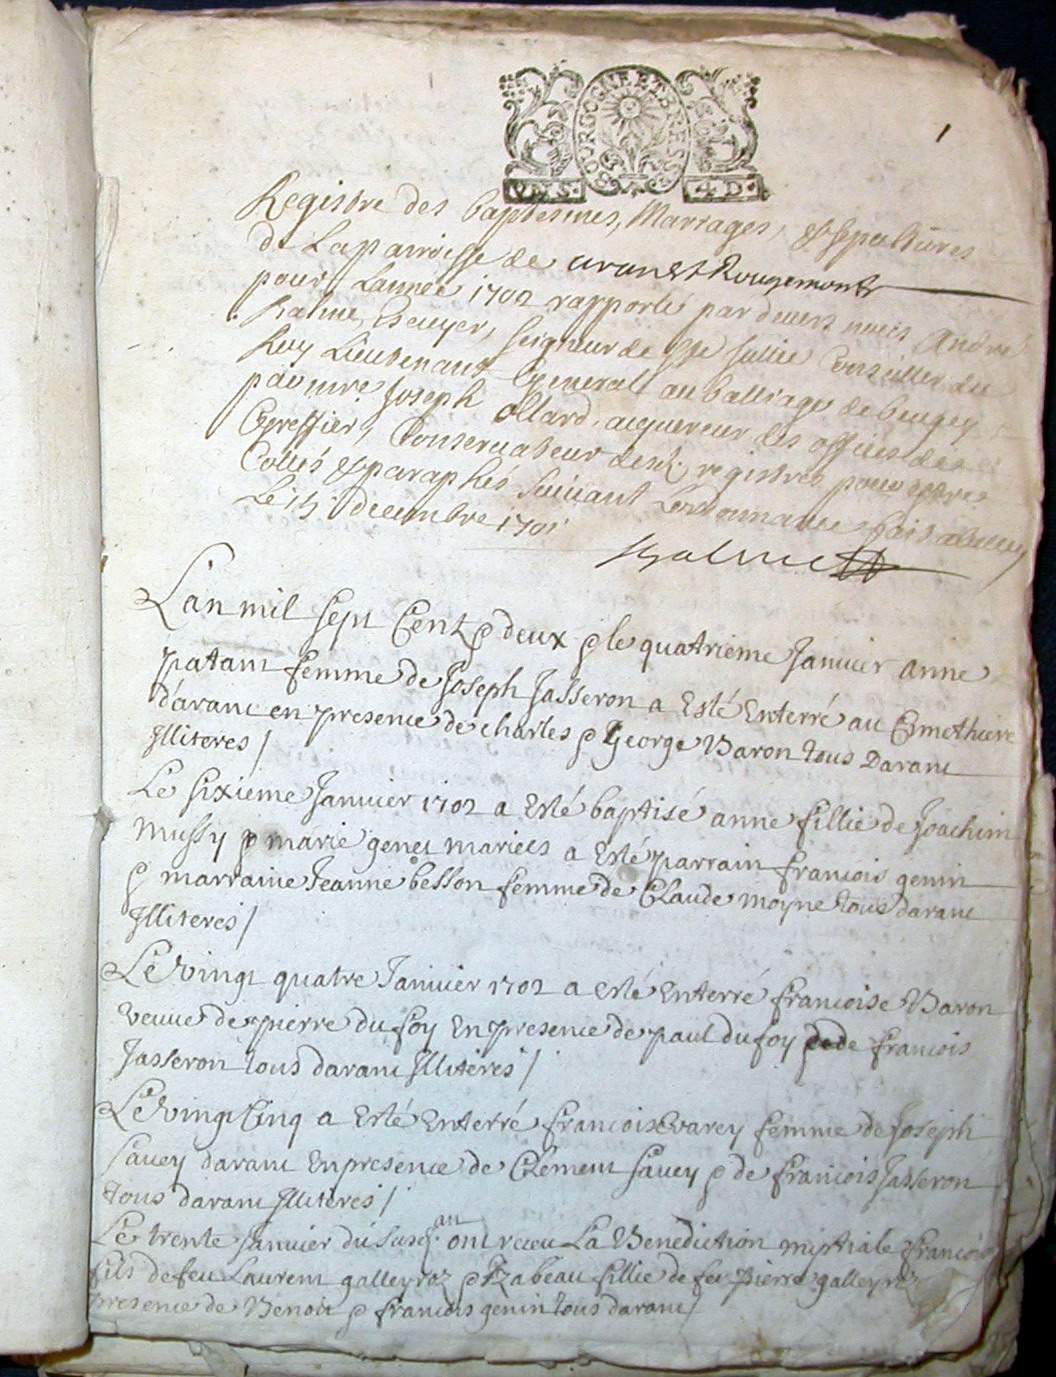 1
BOURGOGNE ET BRESSE
UN S. 4 D.
Registre des baptesmes, Marriages, & sepultures
de La parroisse de aran & Rougemont
pour Lannée 1702 rapporté par devers nous André
Balme, Escuyer, Seigneur de Ste Jullie Conseiller du
Roy Lieutenant General au balliage de beugey
par mre Joseph ollard, acquereur des offices des
Greffier, Conservateur desd. registres pour estre
Cottés & paraphés suivant Lordonnance fait a Belley
Le 15 decembre 1701
Balme
Lan mil sept Cent & deux & le quatrieme Janvier anne
patant femme de Joseph Jasseron a Esté Enterré au Cimethiere
daranc en presence de charles & George Baron tous Daranc
Illiteres /
Le sixieme Janvier 1702 a Esté baptisé anne fillie de Joachim
Mussy & marie genet mariees a Esté parrain francois genin
& marraine Jeanne besson femme de Claude moyne tous daranc
Illiteres /
Le vingt quatre Janvier 1702 a esté Enterré francoise Baron
veuve de pierre du foy En presence de paul dufoy & de francois
Jasseron tous daranc Illiteres /
Le vingt Cinq a Esté Enterré francoise varey femme de Joseph
Savey daranc En presence de Clement Savey & de francois Jasseron
tous daranc Illiteres /
Le trente Janvier du susd. an ont receu La Benediction nuptiale francois
fils de feu Laurent galleyraz & Izabeau fillie de feu pierre galleyraz
presence de Benoit & francois genin tous daranc /